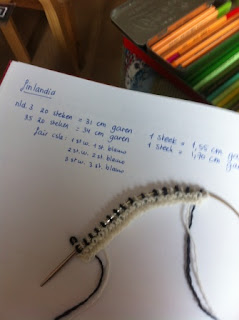 Finlandia
nld 3 20 steken = 31 cm garen 1 steek = 1,55 cm
35 20 steken = 34 cm garen 1 steek = 1,70 cm ga
fair isle: 1 st w. 1 st. blauw
2 st w. 2 st blauw
3 st w. 3 st. blauw